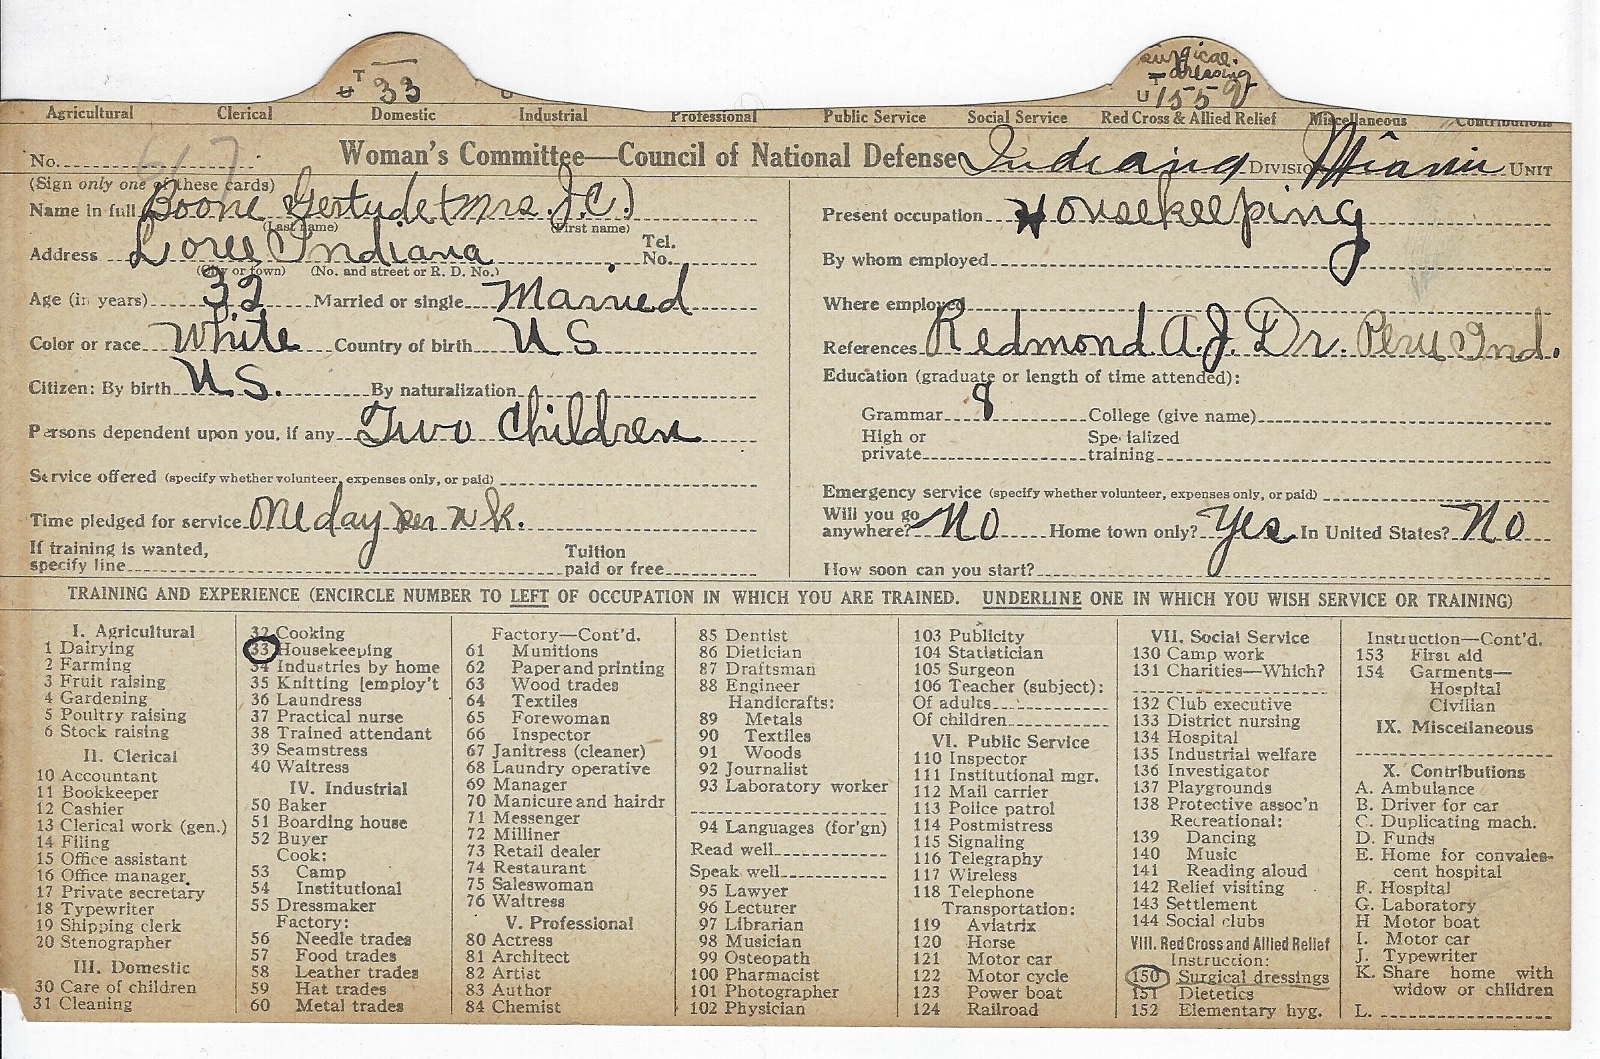 T
U 33
surgical
dressing
T
U 155 V
Agricultural Clerical Domestic Industrial Professional Public Service Social Service Red Cross & Allied Relief Miscellaneous Contributions
No. 617 Woman's Committee—Council of National Defense Indiana DIVISION Miami UNIT
(Sign only one of these cards)
Name in full Boone Gertude (Mrs. J.C.)
(Last name) (First name)
Address Loree Indiana Tel. No.
(City or town) (No. and street or R. D. No.)
Age (in years) 32 Married or single Married
Color or race White Country of birth U S
Citizen: By birth U.S. By naturalization
Persons dependent upon you, if any Two Children
Service offered (specify whether volunteer, expenses only, or paid)
Time pledged for service One day per wk.
If training is wanted, specify line Tuition paid or free
Present occupation Housekeeping
By whom employed
Where employed
References Redmond A.J. Dr. Peru Ind.
Education (graduate or length of time attended):
Grammar 8 College (give name)
High or private Specialized training
Emergency service (specify whether volunteer, expenses only, or paid)
Will you go anywhere? No Home town only? Yes In United States? No
How soon can you start?
TRAINING AND EXPERIENCE (ENCIRCLE NUMBER TO LEFT OF OCCUPATION IN WHICH YOU ARE TRAINED. UNDERLINE ONE IN WHICH YOU WISH SERVICE OR TRAINING)
I. Agricultural
1 Dairying
2 Farming
3 Fruit raising
4 Gardening
5 Poultry raising
6 Stock raising
II. Clerical
10 Accountant
11 Bookkeeper
12 Cashier
13 Clerical work (gen.)
14 Filing
15 Office assistant
16 Office manager
17 Private secretary
18 Typewriter
19 Shipping clerk
20 Stenographer
III. Domestic
30 Care of children
31 Cleaning
32 Cooking
33 Housekeeping
34 Industries by home
35 Knitting [employ't
36 Laundress
37 Practical nurse
38 Trained attendant
39 Seamstress
40 Waitress
IV. Industrial
50 Baker
51 Boarding house
52 Buyer
Cook:
53 Camp
54 Institutional
55 Dressmaker
Factory:
56 Needle trades
57 Food trades
58 Leather trades
59 Hat trades
60 Metal trades
Factory—Cont'd.
61 Munitions
62 Paper and printing
63 Wood trades
64 Textiles
65 Forewoman
66 Inspector
67 Janitress (cleaner)
68 Laundry operative
69 Manager
70 Manicure and hairdr
71 Messenger
72 Milliner
73 Retail dealer
74 Restaurant
75 Saleswoman
76 Waitress
V. Professional
80 Actress
81 Architect
82 Artist
83 Author
84 Chemist
85 Dentist
86 Dietician
87 Draftsman
88 Engineer
Handicrafts:
89 Metals
90 Textiles
91 Woods
92 Journalist
93 Laboratory worker
94 Languages (for'gn)
Read well
Speak well
95 Lawyer
96 Lecturer
97 Librarian
98 Musician
99 Osteopath
100 Pharmacist
101 Photographer
102 Physician
103 Publicity
104 Statistician
105 Surgeon
106 Teacher (subject):
Of adults
Of children
VI. Public Service
110 Inspector
111 Institutional mgr.
112 Mail carrier
113 Police patrol
114 Postmistress
115 Signaling
116 Telegraphy
117 Wireless
118 Telephone
Transportation:
119 Aviatrix
120 Horse
121 Motor car
122 Motor cycle
123 Power boat
124 Railroad
VII. Social Service
130 Camp work
131 Charities—Which?
132 Club executive
133 District nursing
134 Hospital
135 Industrial welfare
136 Investigator
137 Playgrounds
138 Protective assoc'n
Recreational:
139 Dancing
140 Music
141 Reading aloud
142 Relief visiting
143 Settlement
144 Social clubs
VIII. Red Cross and Allied Relief
Instruction:
150 Surgical dressings
151 Dietetics
152 Elementary hyg.
Instruction—Cont'd.
153 First aid
154 Garments—
Hospital
Civilian
IX. Miscellaneous
X. Contributions
A. Ambulance
B. Driver for car
C. Duplicating mach.
D. Funds
E. Home for convales-
cent hospital
F. Hospital
G. Laboratory
H Motor boat
I. Motor car
J. Typewriter
K. Share home with
widow or children
L.